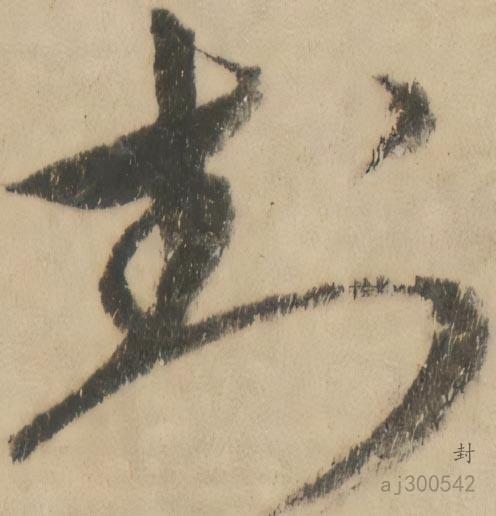 封
封
aj300542